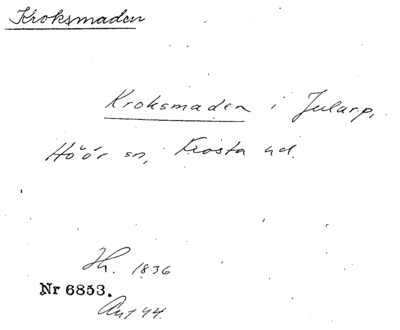 Kroksmaden
Kroksmaden i Jularp,
Höör sn, Frosta hd.
Hn. 1836
Nr 6853.
Ant 44.